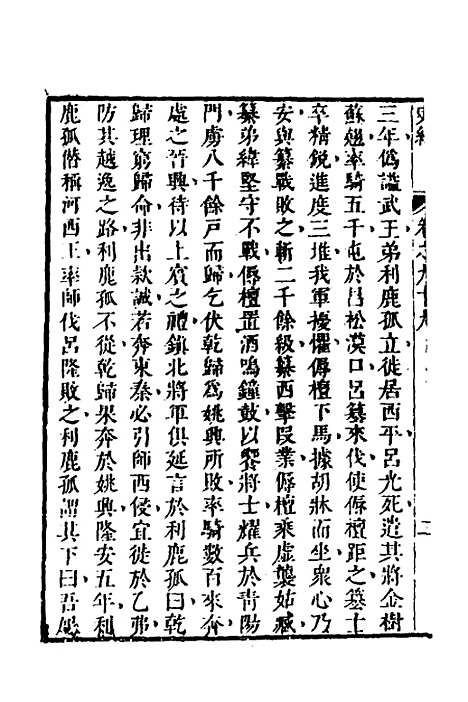 史緯 卷之九十九 二
三年偽謚武王弟利鹿孤立徙居西平呂光死遣其將金樹
蘇翹率騎五千屯於昌松漠口呂纂來伐使傉檀距之纂士
卒精銳進度三堆我軍擾懼傉檀下馬據胡牀而坐衆心乃
安與纂戰敗之斬二千餘級纂西擊段業傉檀乘虛襲姑臧
纂弟緯堅守不戰傉檀置酒鳴鐘鼓以饗將士耀兵於青陽
門虜八千餘戸而歸乞伏乾歸爲姚興所敗率騎數百來奔
處之晉興待以上賓之禮鎮北將軍俱延言於利鹿孤曰乾
歸理窮歸命非出款誠若奔東秦必引師西侵宜徙於乙弗
防其越逸之路利鹿孤不從乾歸果奔於姚興隆安五年利
鹿孤僭稱河西王率師伐呂隆敗之利鹿孤謂其下曰吾